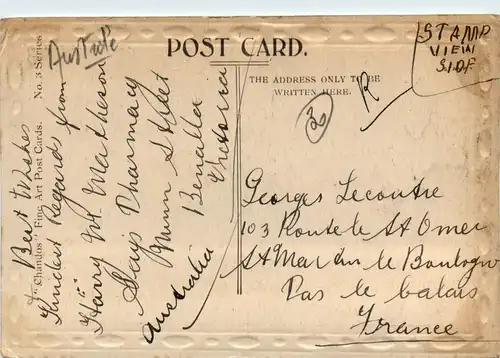 Austrálie
POST CARD.
STAMP
VIEW
SIDE
THE ADDRESS ONLY TO BE
WRITTEN HERE.
30
R
"Chandos" Fine Art Post Cards. No. 3 Series
Best Wishes
Kindest Regards from
Harry W. Matheson
Says Pharmacy
Nunn Street
Benalla
Victoria
Australia
Georges Lecoutre
103 Route de St Omer
St Martin le Boulogne
Pas le Calais
France